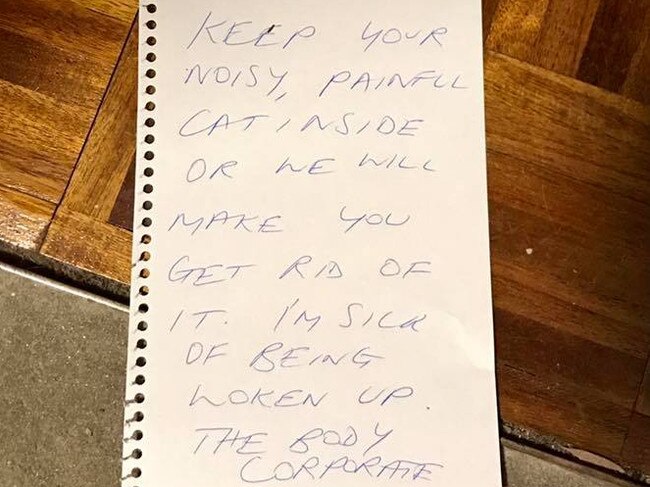 KEEP YOUR
NOISY, PAINFUL
CAT INSIDE
OR WE WILL
MAKE YOU
GET RID OF
IT. I'M SICK
OF BEING
WOKEN UP.
THE BODY
CORPORATE